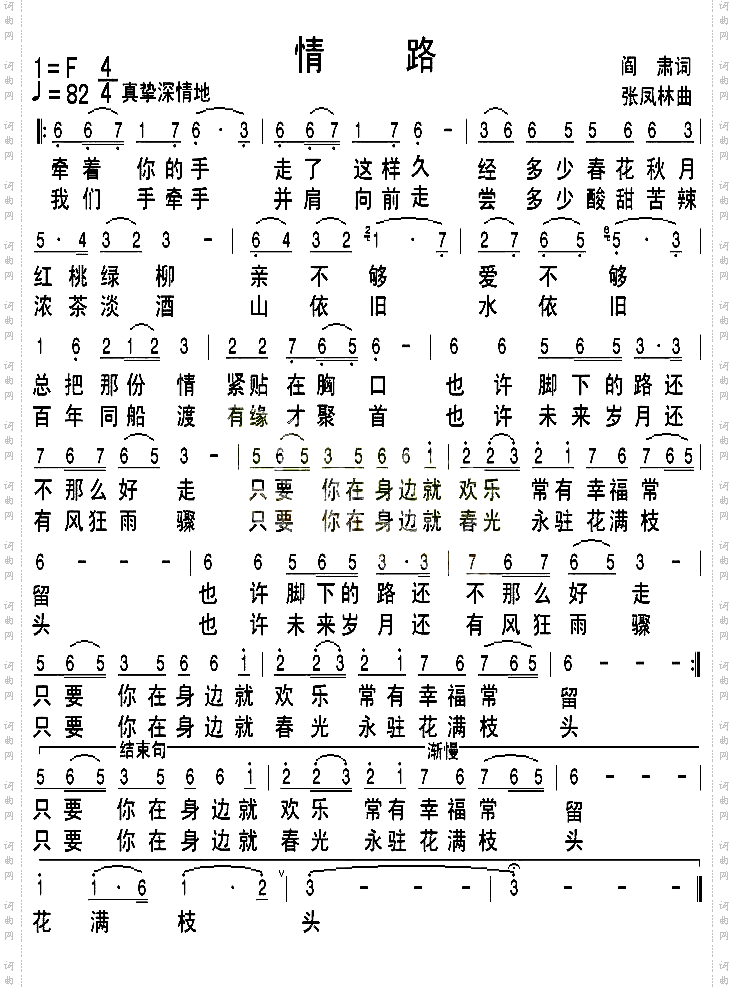 情 路
1=F 4/4
阎 肃词
♩=82 真挚深情地
张凤林曲
6 6 7 1 7 6 · 3 | 6 6 7 6 7 1 7 6 - | 3 6 6 5 5 6 6 3 |
牵着 你的手 走了 这样久 经 多少春花秋月
我们 手牵手 并肩 向前走 尝 多少酸甜苦辣
5 · 4 3 2 3 - | 6 4 3 2 2 1 · 7 | 2 7 6 5 6 5 · 3 |
红桃绿 柳 亲 不 够 爱 不 够
浓茶淡 酒 山 依 旧 水 依 旧
1 6 2 1 2 3 | 2 2 7 6 5 6 - | 6 6 5 6 5 3 · 3 |
总 把 那 份 情 紧贴在胸 口 也 许 脚下的路还
百 年 同 船 渡 有缘才聚 首 也 许 未来岁月还
7 6 7 6 5 3 - | 5 6 5 3 5 6 6 1 | 2 2 3 2 1 7 6 7 6 5 |
不那么好 走 只要 你在身边就 欢乐 常有幸福常
有风狂雨 骤 只要 你在身边就 春光 永驻花满枝
6 - - - | 6 6 5 6 5 3 · 3 | 7 6 7 6 5 3 - |
留 也 许 脚下的路还 不那么好 走
头 也 许 未来岁月还 有风狂雨 骤
5 6 5 3 5 6 6 1 | 2 2 3 2 1 7 6 7 6 5 | 6 - - - :|
只要 你在身边就 欢乐 常有幸福常 留
只要 你在身边就 春光 永驻花满枝 头
结束句 渐慢
5 6 5 3 5 6 6 1 | 2 2 3 2 1 7 6 7 6 5 | 6 - - - |
只要 你在身边就 欢乐 常有幸福常 留
只要 你在身边就 春光 永驻花满枝 头
1 1 · 6 1 · 2 | 3 - - - | 3 - - - ||
花 满 枝 头
词曲网